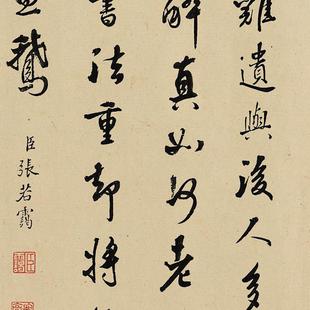 難遺與後人多
真如何老
書法重却將
鵝
臣張若靄